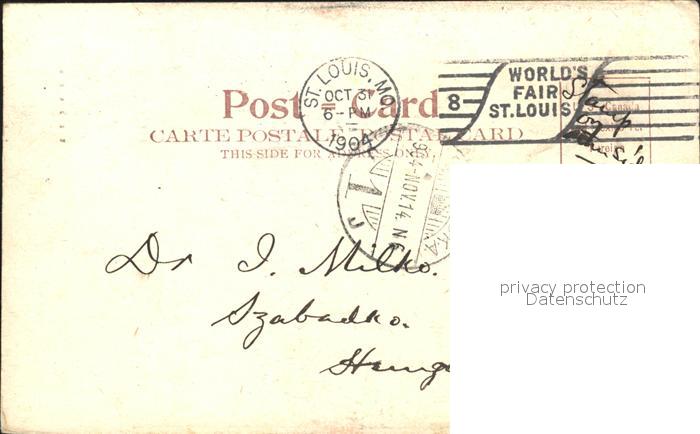 Post Card
CARTE POSTALE - POSTAL CARD
THIS SIDE FOR ADDRESS ONLY
ST. LOUIS, MO.
OCT 31
6-PM
1904
8
WORLD'S
FAIR
ST. LOUIS
904-NOV.14. N
1
Dr J. Milko.
Szabadka.
Hung
privacy protection
Datenschutz